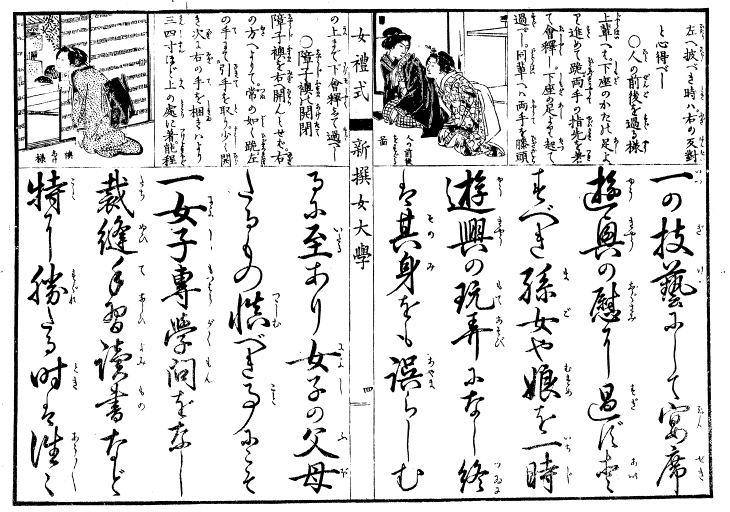 左へ披べき時ハ右の反對
と心得べし
○人の前後を過る様
上輩へハ下座のかたの足よ
り進めて跪両手の指先を着
て會釋し下座の足より起て
過べし同輩へハ両手を膝頭
の上まで下會釋して過べし
○障子襖の開閉
障子襖を右へ開んとせバ右
の方へよりて常の如く跪左
の手にて引手を取り少く開
き次に右の手を框きハより
三四寸ほど上の處に着能程
一の技藝にして宴席
遊興の慰に過ず愛
すべき孫女や娘を一時
遊興の玩弄になし終
に其身をも誤らしむ
女禮式
新撰女大學
四
るに至あり女子の父母
たるもの慎べき事にこそ
一女子専學問を為し
裁縫手習讀書など
特に勝たる時は往々